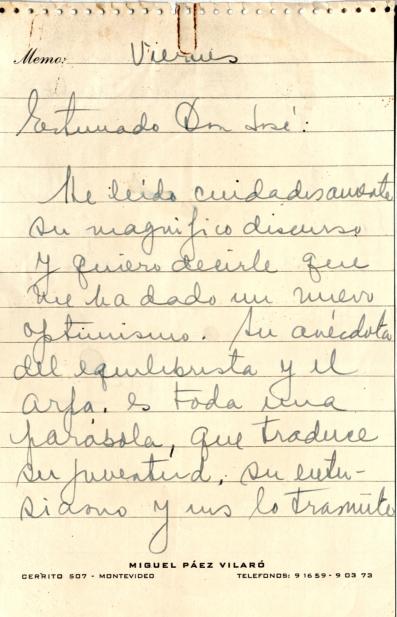 Memo: Viernes
Estimado Don José:
He leído cuidadosamente
su magnífico discurso
y quiero decirle que
me ha dado un nuevo
optimismo. Su anécdota
del equilibrista y el
arpa. es toda una
parábola, que traduce
su juventud, su entu-
siasmo y nos lo trasmite
MIGUEL PÁEZ VILARÓ
CERRITO 507 - MONTEVIDEO TELEFONOS: 9 16 59 - 9 03 73